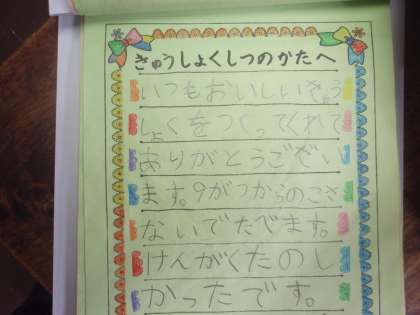 きゅうしょくしつのかたへ
いつもおいしいきゅう
しょくをつくってくれて
ありがとうござい
ます。9がつからのこさ
ないでたべます。
けんがくたのし
かったです。